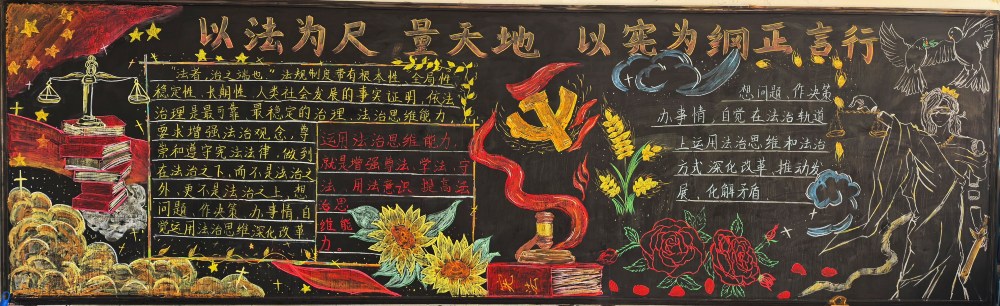 以法为尺 量天地 以宪为纲正言行
“法者，治之端也。”法规制度带有根本性、全局性、
稳定性、长期性，人类社会发展的事实证明，依法
治理是最可靠、最稳定的治理，法治思维能力，
要求增强法治观念，尊
崇和遵守宪法法律，做到
在法治之下，而不是法治之
外，更不是法治之上，想
问题、作决策、办事情，自
觉运用法治思维深化改革
运用法治思维能力，
就是增强尊法、学法、守
法、用法意识，提高运
治思
维能
力。
想问题、作决策、
办事情，自觉在法治轨道
上运用法治思维和法治
方式深化改革、推动发
展、化解矛盾
宪法